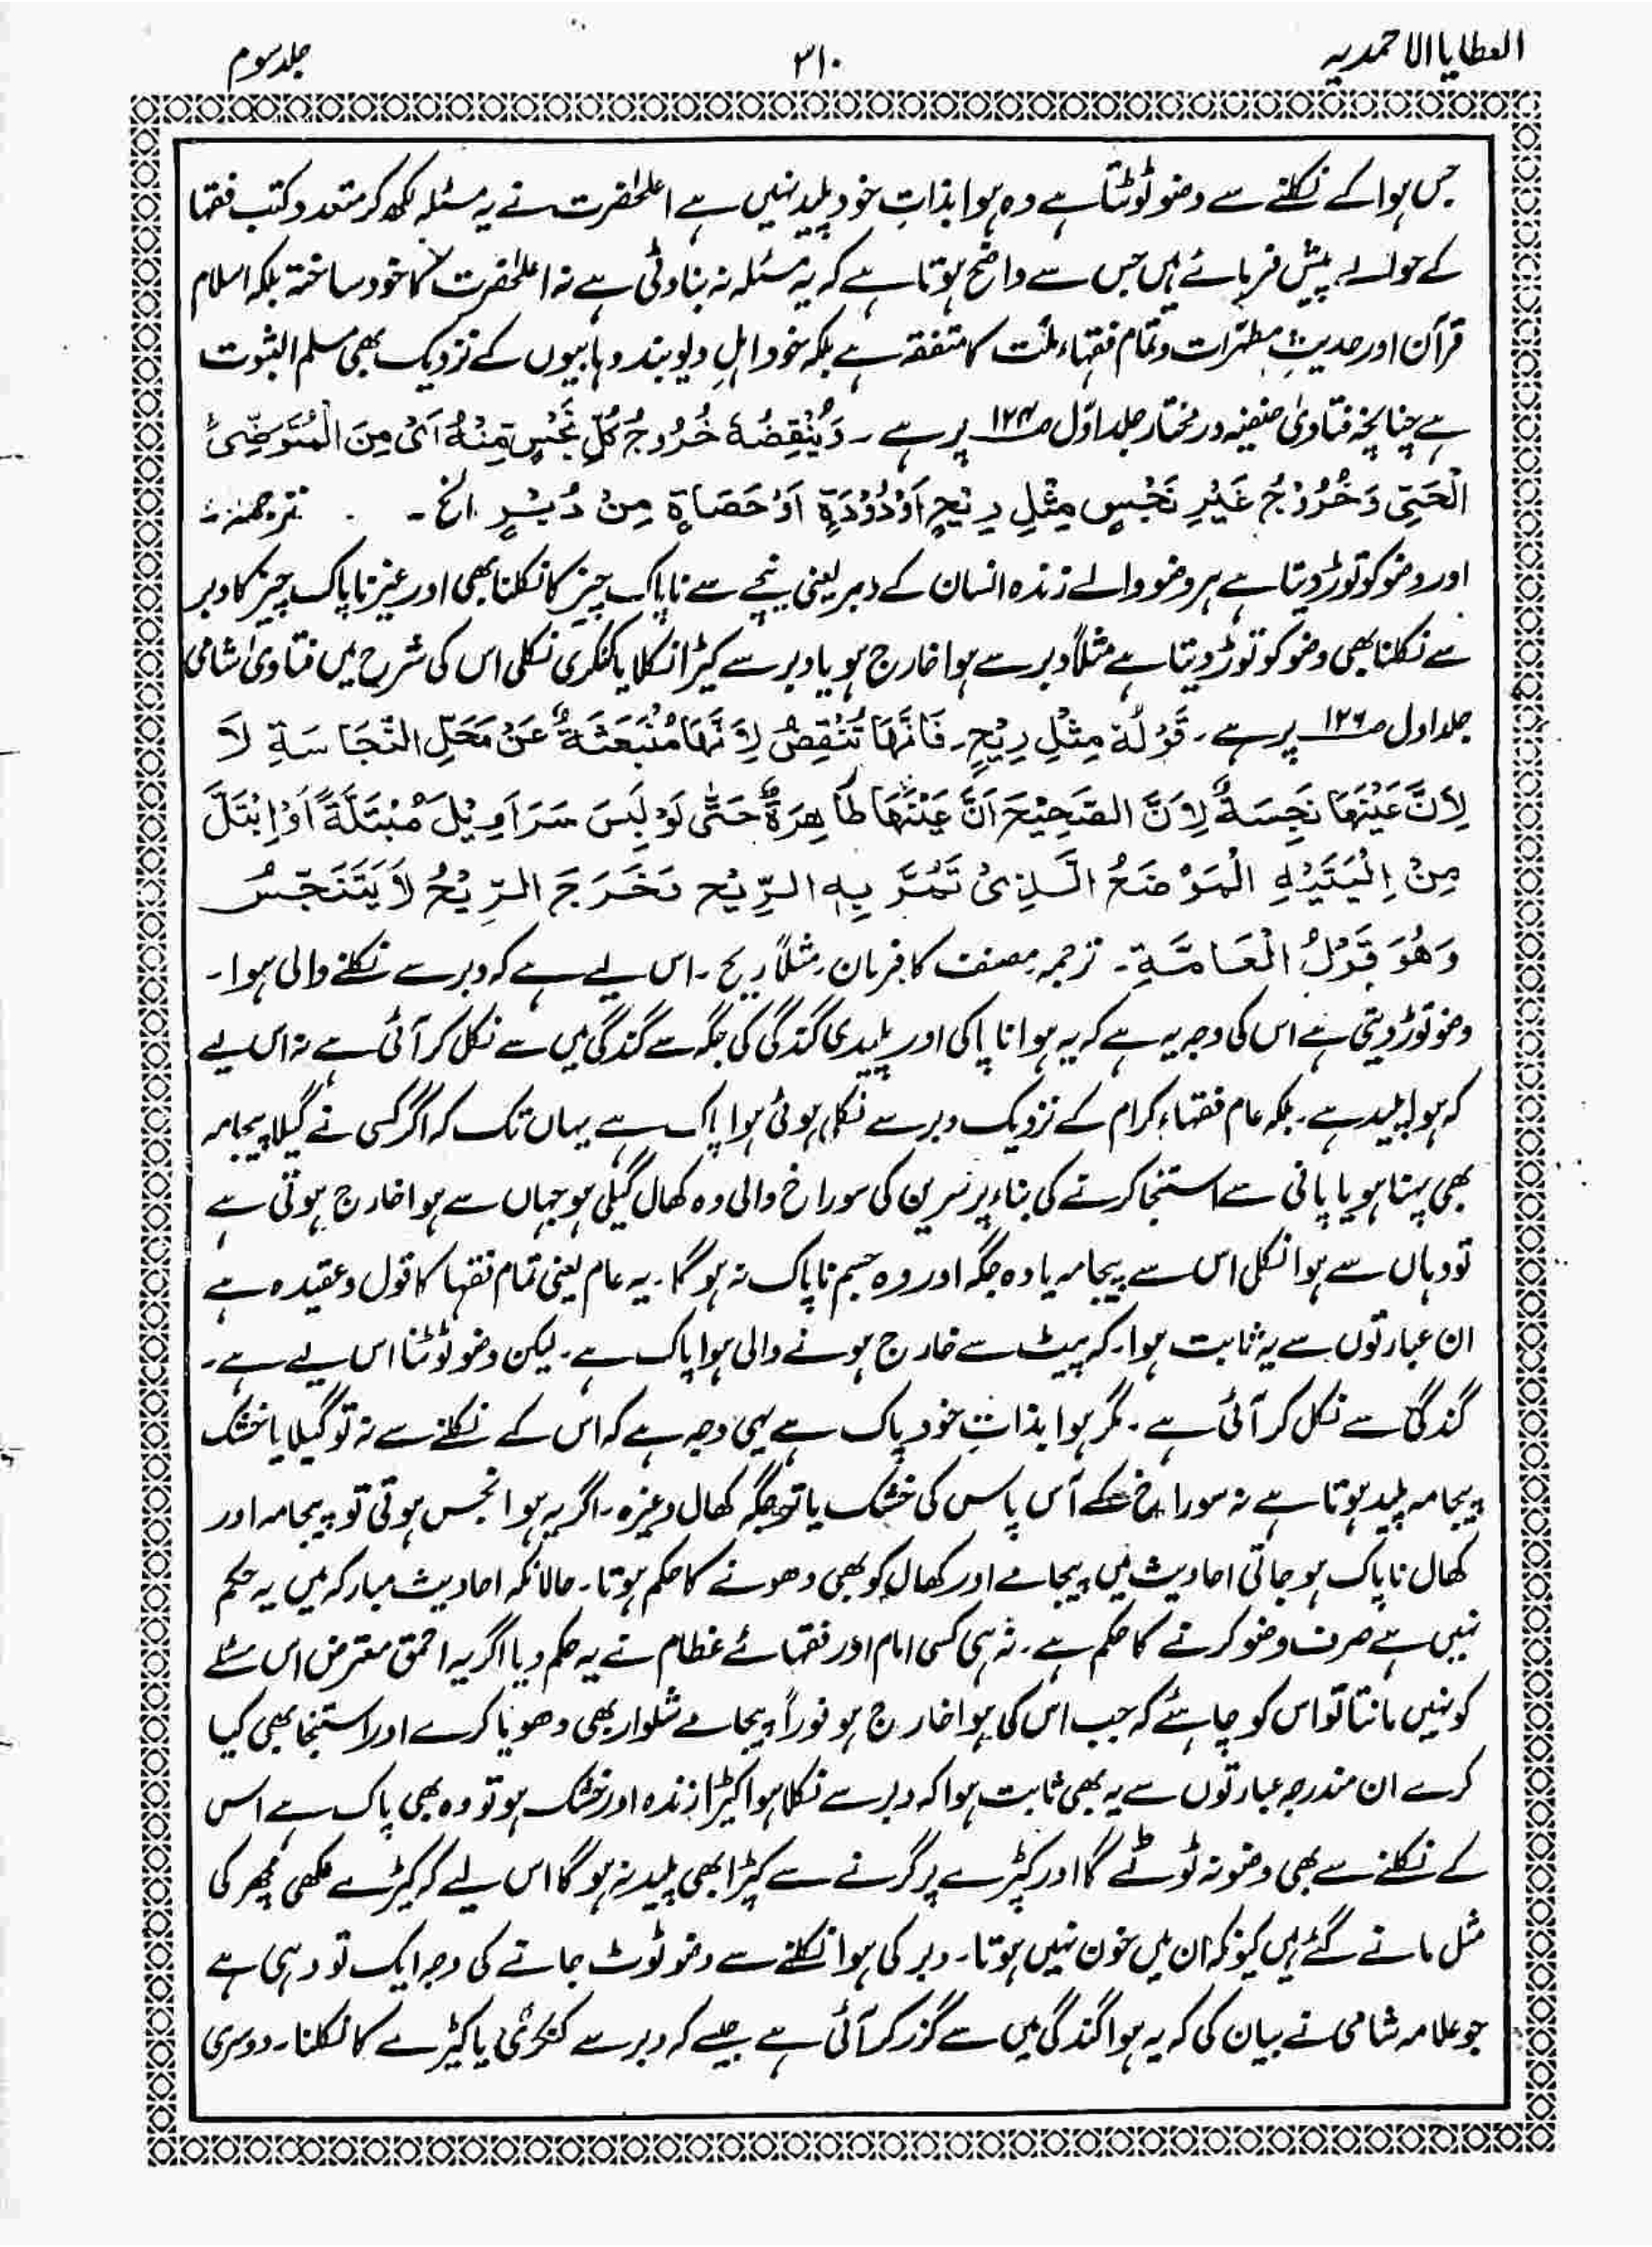 العطایا الاحمدیہ ۳۱۰ جلد سوم
جس ہوا کے نکلنے سے وضو ٹوٹتا ہے وہ ہوا بذاتِ خود پلید نہیں ہے اعلحضرت نے یہ مسئلہ لکھ کر متعدد کتب فقہا
کے حوالے پیش فرمائے ہیں جس سے واضح ہوتا ہے کہ یہ مسئلہ نہ بناوٹی ہے نہ اعلحضرت کا خود ساختہ بلکہ اسلام
قرآن اور حدیثِ مطہرات و تمام فقہاء ملّت کا متفقہ ہے بلکہ خود اہلِ دیوبند وہابیوں کے نزدیک بھی مسلم الثبوت
ہے چنانچہ فتاویٰ حنفیہ در مختار جلد اوّل ص ۱۲۴ پر ہے ۔ وَیُنْقِضُہٗ خُرُوجُ کُلِّ نَجَسٍ مِّنْہُ اَیْ مِنَ الْمُتَوَضِّیْٔ
الْحَیِّ وَخُرُوْجُ غَیْرِ نَجْسٍ مِثْلِ رِیْحٍ اَوْدُوْدَۃٍ اَوْ حَصَاۃٍ مِنْ دُبُرٍ الخ ۔ ترجمہ :۔
اور وضو کو توڑ دیتا ہے ہر وضو والے زندہ انسان کے دبر یعنی نیچے سے ناپاک چیز کا نکلنا بھی اور غیر ناپاک چیز کا دبر
سے نکلنا بھی وضو کو توڑ دیتا ہے مثلاً دبر سے ہوا خارج ہو یا دبر سے کیڑا نکلا یا کنکری نکلی اس کی شرح میں فتاویٰ شامی
جلد اول ص ۱۲۶ پر ہے ۔ قَوْلُہٗ مِثْلِ رِیْحٍ ۔ فَاِنَّھَا تُنْقِضُ لِاَنَّھَا مُنْبَعَثَۃٌ عَنْ مَحَلِّ النَّجَاسَۃِ لَا
لِاَنَّ عَیْنَھَا نَجِسَۃٌ لِاَنَّ الصَّحِیْحَ اَنَّ عَیْنَھَا طَاھِرَۃٌ حَتّٰی لَوْ لَبِسَ سَرَاوِیْلَ مُبْتَلَّۃً اَوْ اِبْتَلَّ
مِنْ اِلْیَتَیْہِ الْمَوْضَعُ الَّذِیْ تَمُرُّ بِہٖ الرِّیْحُ فَخَرَجَ الرِّیْحُ لَا یَتَنَجَّسُ
وَھُوَ قَوْلُ الْعَامَّۃِ ۔ ترجمہ مصنف کا فرمان ۔ مثلاً ریح ۔ اس لیے ہے کہ دبر سے نکلنے والی ہوا ۔
وضو توڑ دیتی ہے اس کی وجہ یہ ہے کہ یہ ہوا ناپاکی اور پلیدی گندگی کی جگہ سے گندگی میں سے نکل کر آئی ہے نہ اس لیے
کہ ہوا پلید ہے ۔ بلکہ عام فقہاء کرام کے نزدیک دبر سے نکلی ہوئی ہوا پاک ہے یہاں تک کہ اگر کسی نے گیلا پیجامہ
بھی پہنا ہو یا پانی سے استنجا کرنے کی بناء پر سُرین کی سوراخ والی وہ کھال گیلی ہو جہاں سے ہوا خارج ہوتی ہے
تو وہاں سے ہوا نکلی اس سے پیجامہ یا وہ جگہ اور وہ جسم ناپاک نہ ہو گا ۔ یہ عام یعنی تمام فقہا کا قول و عقیدہ ہے
ان عبارتوں سے یہ ثابت ہوا ۔ کہ پیٹ سے خارج ہونے والی ہوا پاک ہے ۔ لیکن وضو ٹوٹنا اس لیے ہے ۔
گندگی سے نکل کر آئی ہے ۔ مگر ہوا بذاتِ خود پاک ہے یہی وجہ ہے کہ اس کے نکلنے سے نہ تو گیلا یا خشک
پیجامہ پلید ہوتا ہے نہ سوراخ کے آس پاس کی خشک یا تر جگہ کھال وغیرہ ۔ اگر یہ ہوا نجس ہوتی تو پیجامہ اور
کھال ناپاک ہو جاتی احادیث میں پیجامے اور کھال کو بھی دھونے کا حکم ہوتا ۔ حالانکہ احادیث مبارکہ میں یہ حکم
نہیں ہے صرف وضو کرنے کا حکم ہے ۔ نہ ہی کسی امام اور فقہائے عظام نے یہ حکم دیا اگر یہ احمق معترض اس مسئلے
کو نہیں مانتا تو اس کو چاہئے کہ جب اس کی ہوا خارج ہو فوراً پیجامے شلوار بھی دھویا کرے اور استنجا بھی کیا
کرے ان مندرجہ عبارتوں سے یہ بھی ثابت ہوا کہ دبر سے نکلا ہوا کیڑا زندہ اور خشک ہو تو وہ بھی پاک ہے اس
کے نکلنے سے بھی وضو نہ ٹوٹے گا اور کپڑے پر گرنے سے کپڑا بھی پلید نہ ہو گا اس لیے کہ کیڑے مکھی مچھر کی
مثل مانے گئے ہیں کیونکہ ان میں خون نہیں ہوتا ۔ دبر کی ہوا نکلنے سے وضو ٹوٹ جانے کی وجہ ایک تو وہی ہے
جو علامہ شامی نے بیان کی کہ یہ ہوا گندگی میں سے گزر کر آئی ہے جیسے کہ دبر سے کنکری یا کیڑے کا نکلنا ۔ دوسری